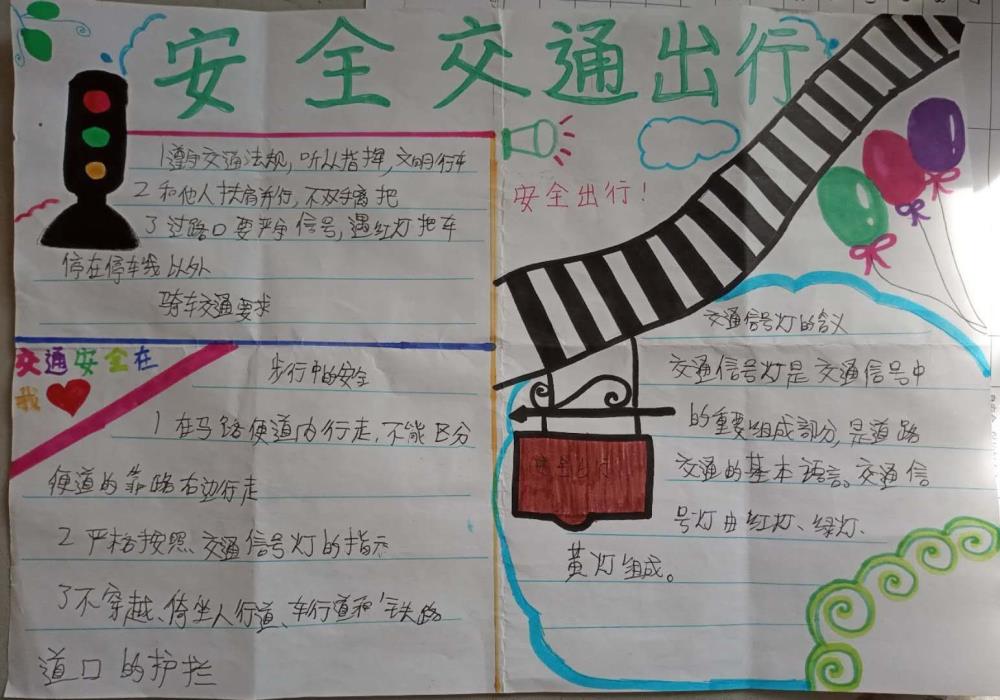 安全交通出行
1遵守交通法规,听从指挥,文明行车
2 和他人扶肩并行,不双手离把
3 过路口要严争信号,遇红灯把车
停在停车线以外
骑车交通要求
交通安全在
我
步行中的安全
1 在马路便道内行走,不能区分
便道的靠路右边行走
2 严格按照、交通信号灯的指示
3不穿越、倚坐人行道、车行道和铁路
道口的护拦
安全出行!
交通信号灯的含义
交通信号灯是交通信号中
的重要组成部分,是道路
交通的基本语言。交通信
号灯由红灯、绿灯、
黄灯组成。